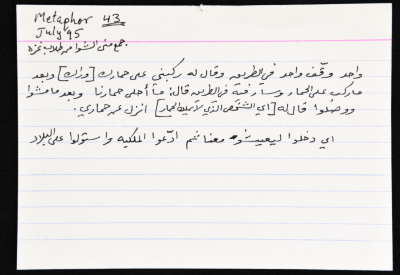 Metaphor 43
July 95
جمع منى الشوا من طلاب غزة
واحد وقّف واحد في الطريق وقال له ركبني على حمارك [وراك] وبعد
ماركب على الحمار وسار فيه في الطريق قال: ما أحلى حمارنا وبعد ما مشوا
ووصلوا قال له [اي الشخص الذي لا يملك الحمار] انزل عن حماري.
اي دخلوا ليعيشوا معنا ثم ادّعوا الملكيه واستولوا على البلاد